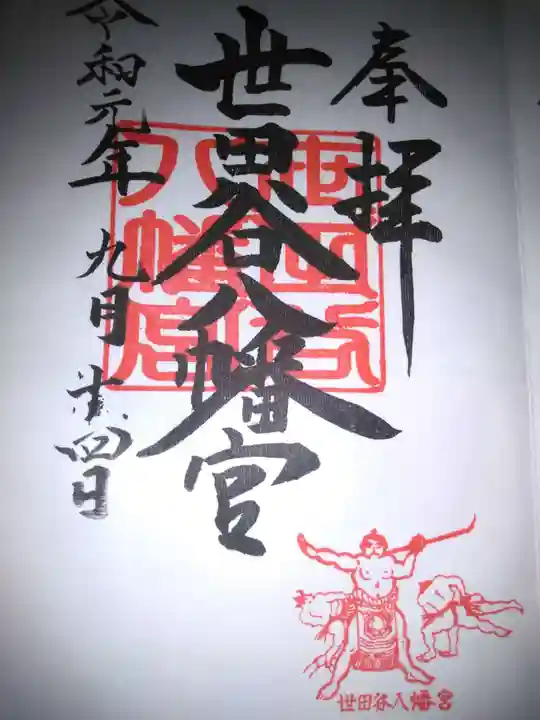 奉拝
世田谷八幡宮
世田谷
八幡宮
令和元年九月十四日
世田谷八幡宮